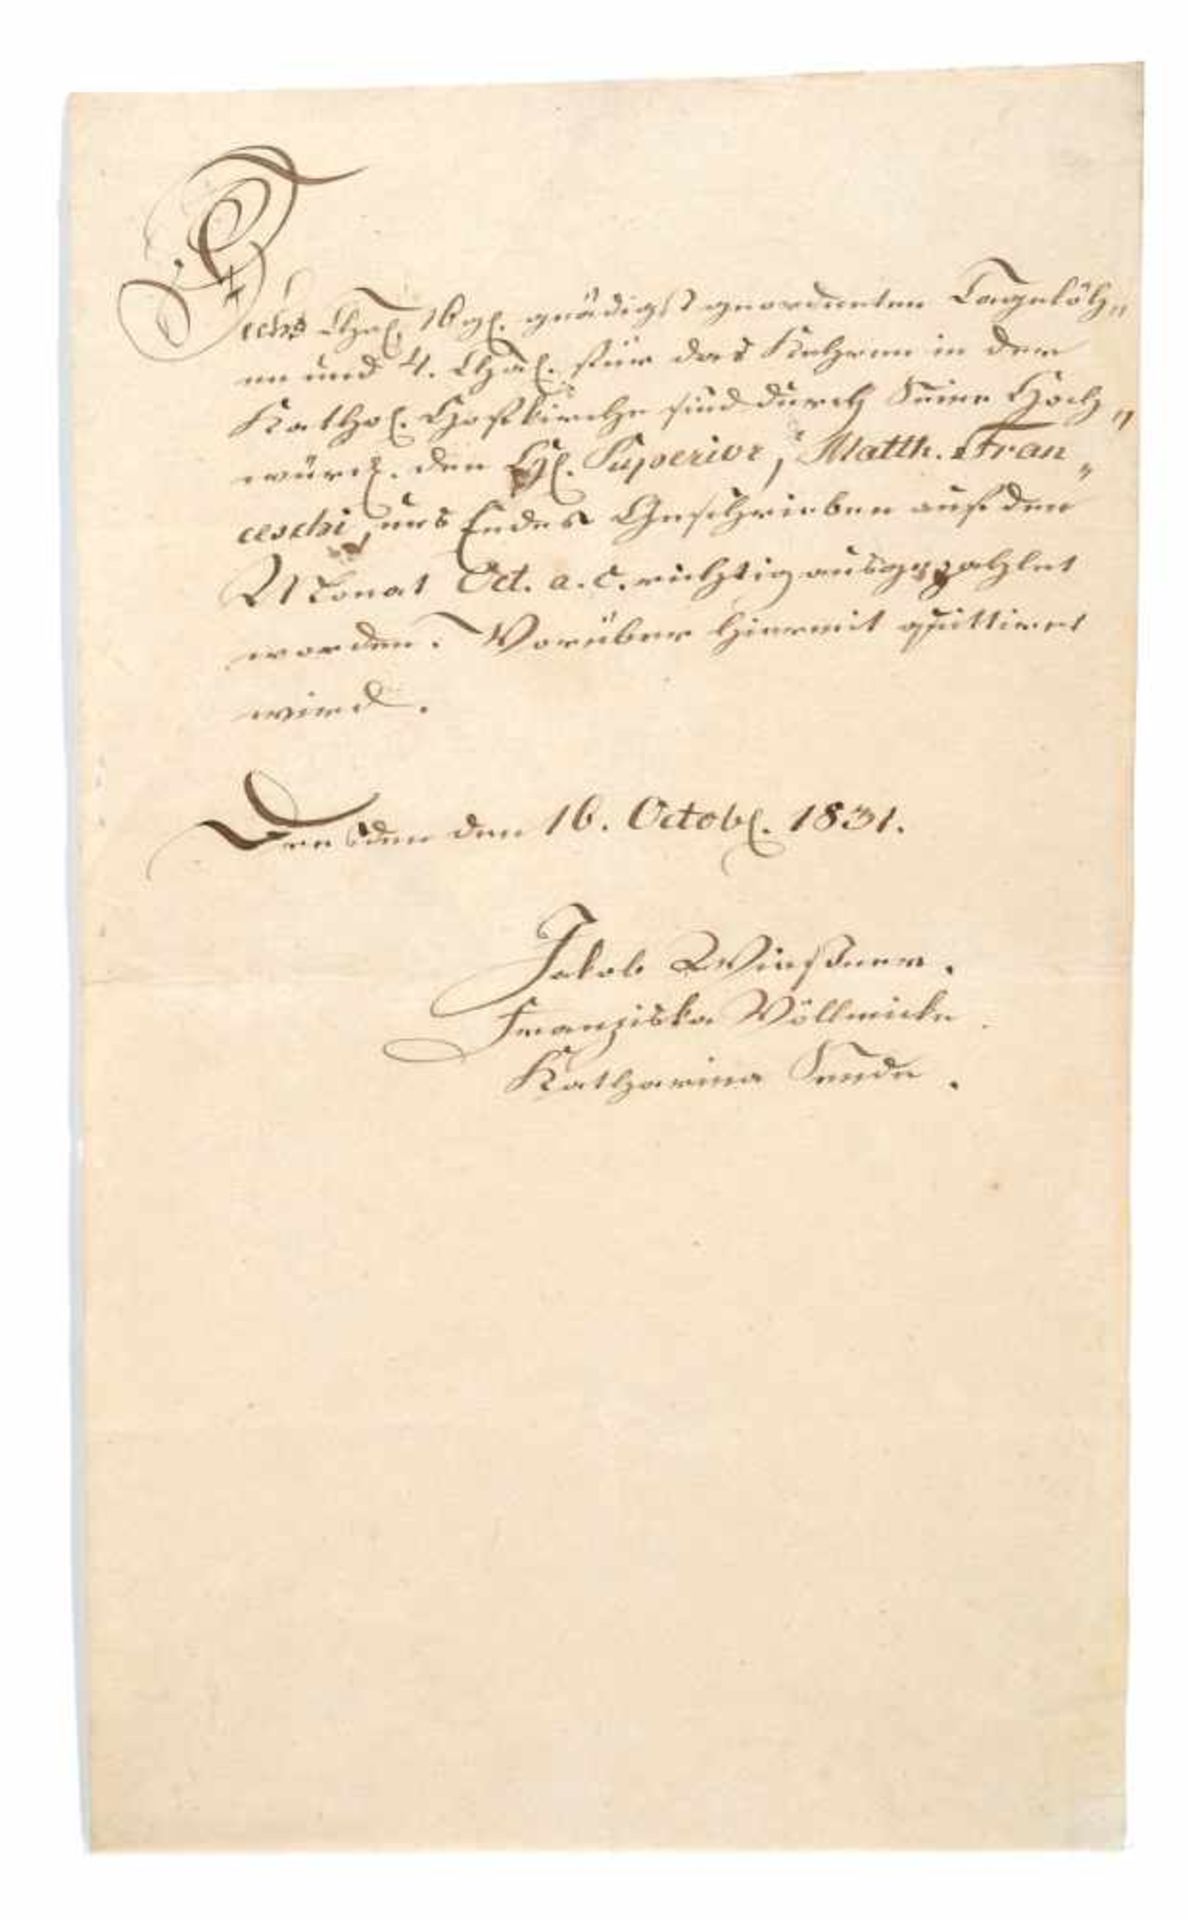 Sechs Thal. 16 gl. gnädigst geordneten Tagelöh„
ne und 4. Thal. für das Kehren in der
Kathol. Hofkirche sind durch Seine Hoch„
würd. den H. Superior, Matth. Fran„
ceschi, uns Endes Geschrieben auf den
Monat Oct. a. c. richtig ausgezahlet
worden. Worüber hiermit quittiret
wird.
Dresden den 16. Octob. 1831.
Jakob
Franziska Völlmicke
Katharina